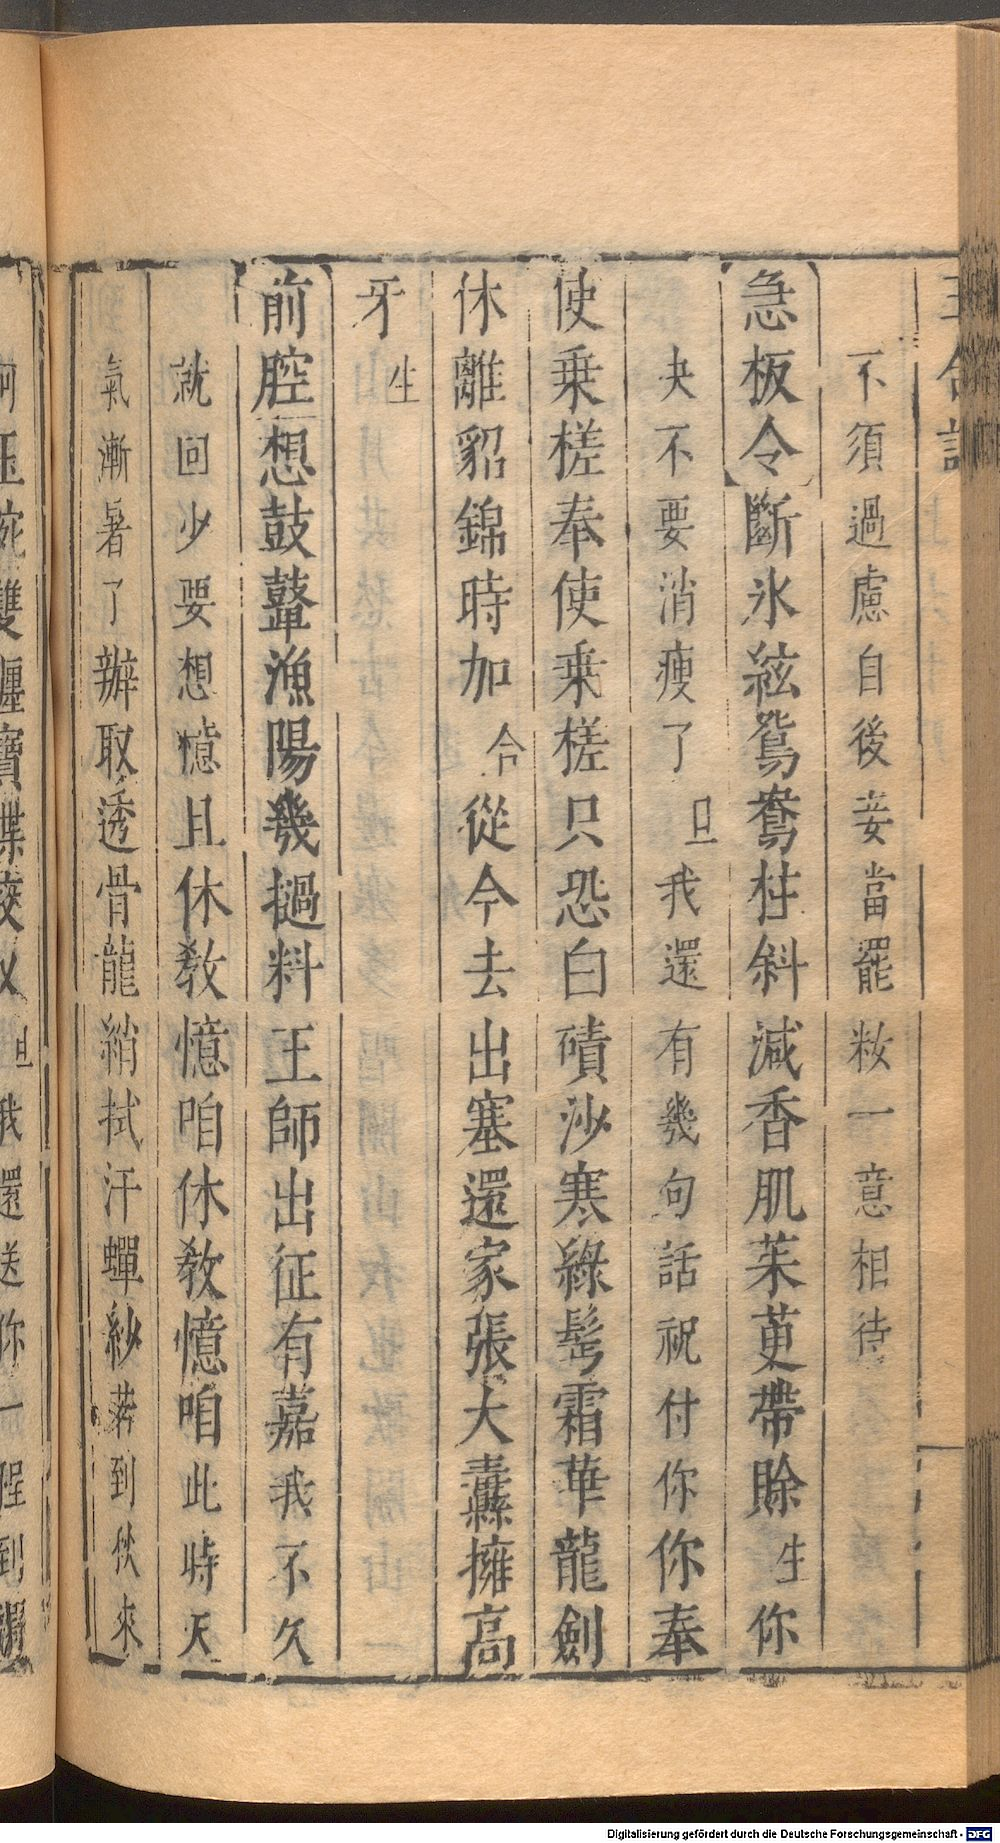 不須過慮自後妾當罷粧一意相待
急板令斷氷絃鴛鴦柱斜減香肌茱萸帶賒生你
夬不要消瘦了旦我還有幾句話祝付你你奉
使乗槎奉使乗槎只恐白磧沙寒綠髩霜華龍劍
休離貂錦時加合從今去出塞還家張大纛擁高
牙生
前腔想鼓鼙漁陽幾撾料王師出征有嘉我不久
就回少要想憶旦休敎憶咱休敎憶咱此時天
氣漸暑了辦取透骨龍綃拭汗蟬紗若到秋來
玉 雙 寶 旦我還送你一程到
Digitalisierung gefördert durch die Deutsche Forschungsgemeinschaft - DFG